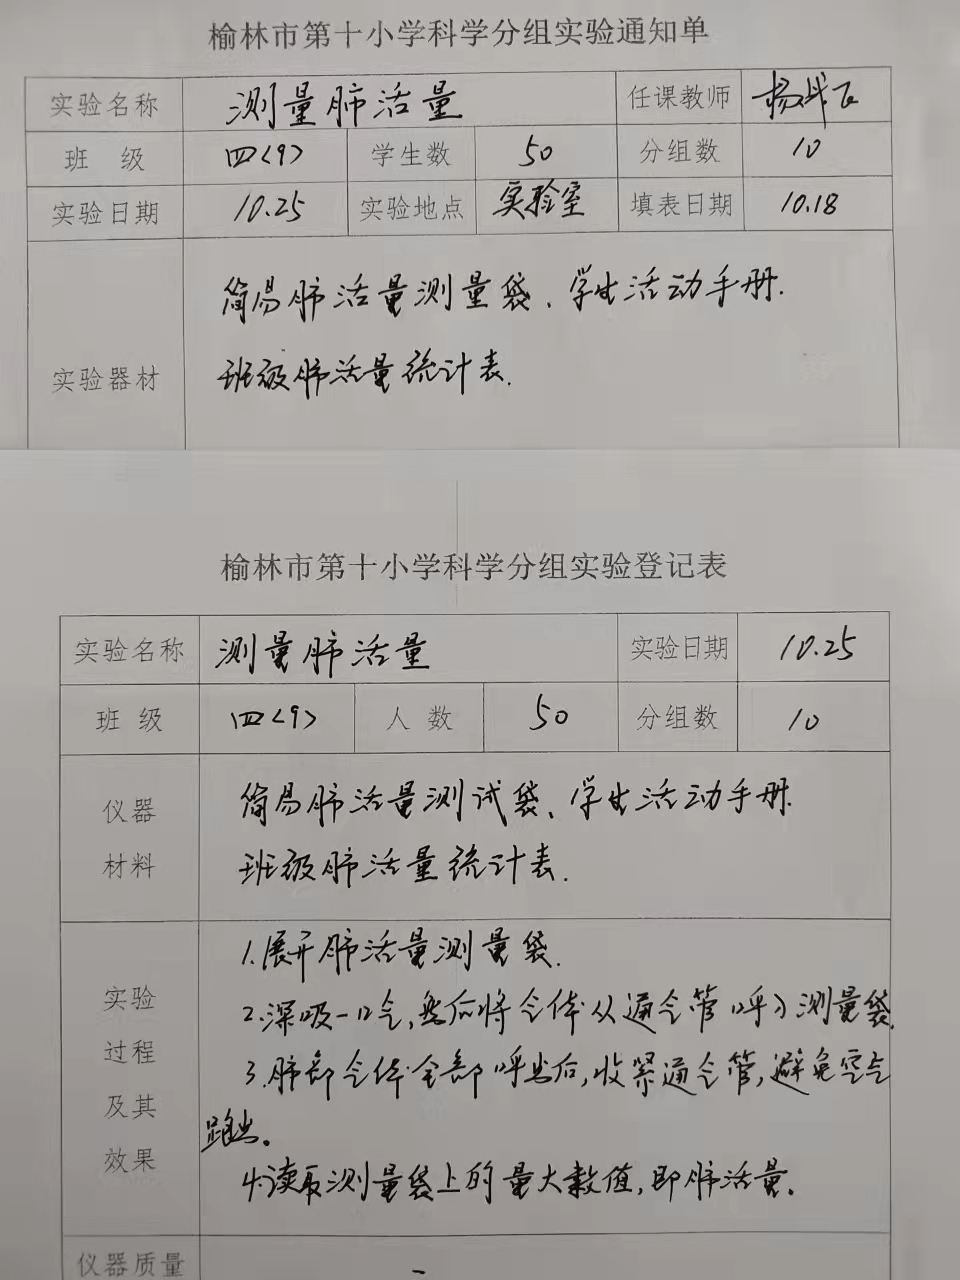 榆林市第十小学科学分组实验通知单
实验名称 测量肺活量 任课教师
班 级 四<9> 学生数 50 分组数 10
实验日期 10.25 实验地点 实验室 填表日期 10.18
简易肺活量测量袋、学生活动手册.
实验器材 班级肺活量统计表.
榆林市第十小学科学分组实验登记表
实验名称 测量肺活量 实验日期 10.25
班 级 四<9> 人 数 50 分组数 10
仪器 简易肺活量测试袋、学生活动手册.
材料 班级肺活量统计表.
1.展开肺活量测量袋.
实验 2.深吸一口气,然后将气体从通气管呼入测量袋.
过程 3.肺部气体全部呼出后,收紧通气管,避免空气
及其 跑出。
效果 4.读取测量袋上的量大数值,即肺活量.
仪器质量 -